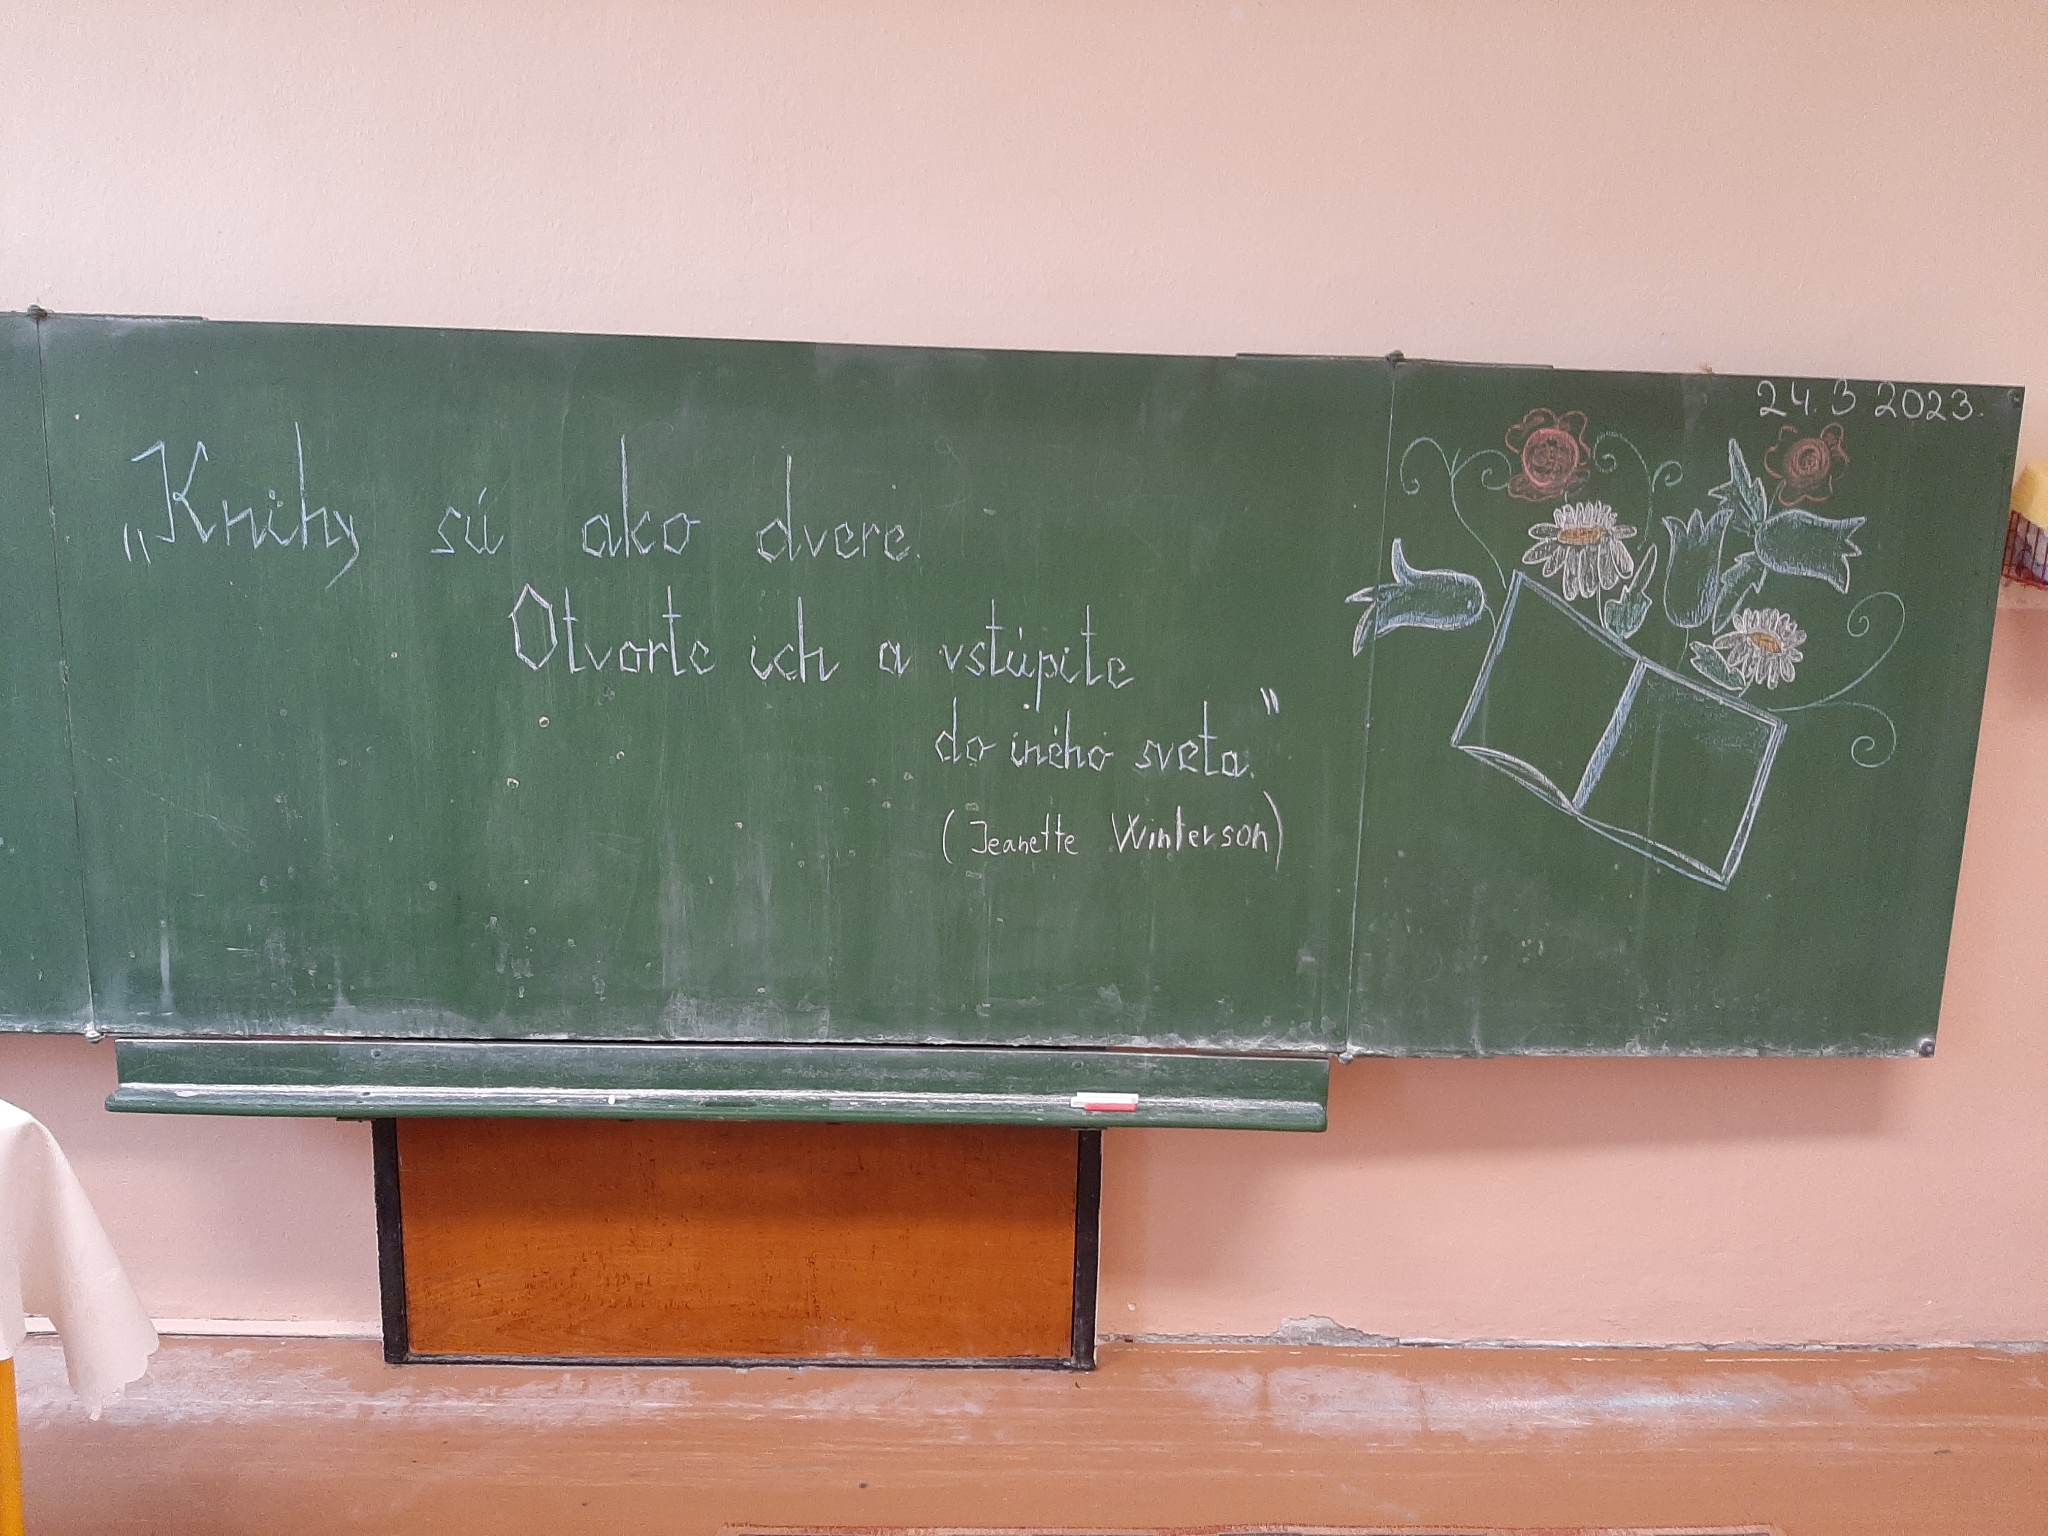 24. 3 2023.
„Knihy sú ako dvere.
Otvorte ich a vstúpite
do iného sveta."
(Jeanette Winterson)